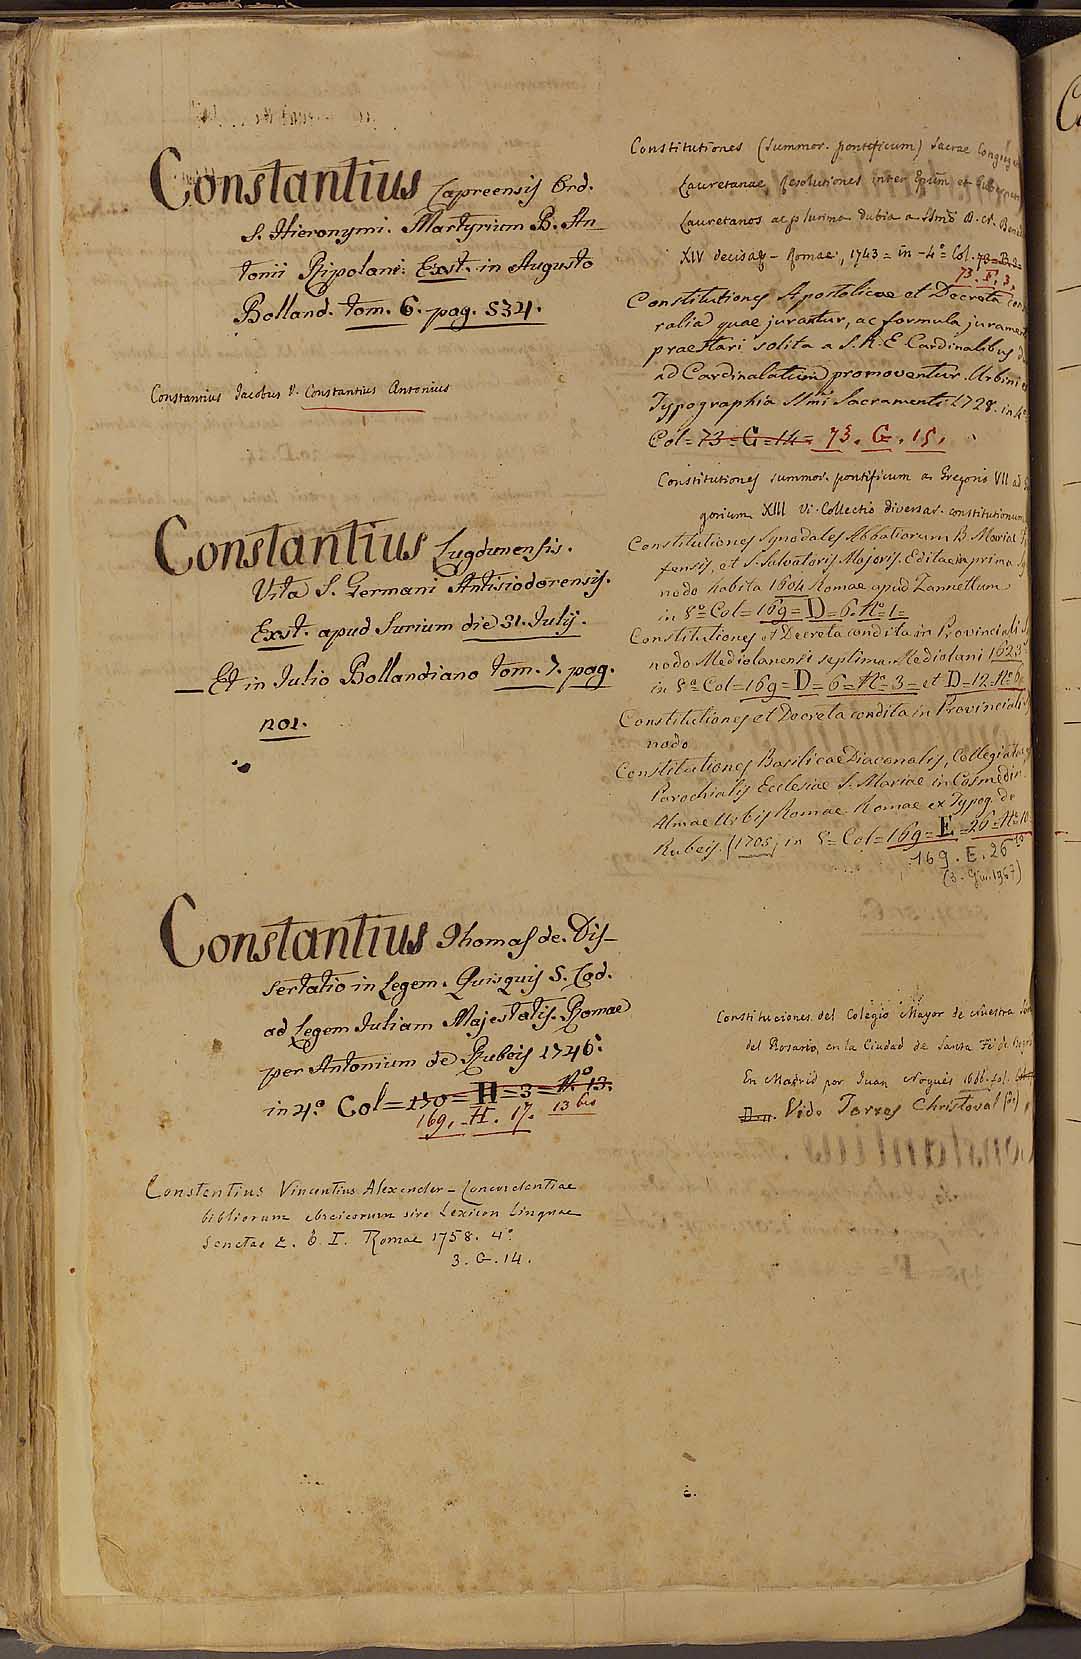 Constantius Capreensis Ord.
S. Hieronymi. Martyrium B. An-
tonii Ripolani. Exst. in Augusto
Bolland. tom. 6. pag. 534.
Constantius Jacobus V. Constantius Antonius
Constantius Lugdunensis.
Vita S. Germani Antisiodorensis.
Exst. apud Surium die 31. Julij.
— Et in Julio Bollandiano tom. 7. pag.
201.
Constantius Thomas de. Dis-
sertatio in Legem. Quisquis S. Cod.
ad Legem Juliam Majestatis. Romae
per Antonium de Rubeis 1746.
in 4.o Col=170=H=3=N.o 13.
169. H. 17. 13 bis
Constantius Vincentius Alexander – Concordantiae
bibliorum ebraicorum sive Lexicon Linguae
Sanctae Z. T. I. Romae 1758. 4.o
3. G. 14.
Constitutiones (Summor. pontificum) Sacrae
Lauretanae Resolutiones inter Epum et
Lauretanos ac plurima dubia a SSmo D. N.
XIV decisae – Romae, 1743 = in -4.o Col. 73=
73. F. 3.
Constitutiones Apostolicae et Decreta
ralia quae jurantur, ac formula
praestari solita a S. R. E. Cardinalibus
ad Cardinalatum promoventur. Urbini
Typographia SSmi Sacramenti 1728. in 4.o
Col=73=G=14= 73. G. 15.
Constitutiones summor. pontificum a Gregorio VII ad
gorium XIII Vi. Collectio diversar. constitutionum
Constitutiones Synodales Abbatiarum B. Mariae
fensis, et S. Salvatoris Majoris. Editae in prima
nodo habita 1604 Romae apud Zannettum
in 8.o Col=169=D=6. N.o 1=
Constitutiones et Decreta condita in Provinciali
nodo Mediolanensi septima. Mediolani 1623
in 8.o Col=169=D=6=N.o 3= et D=12=N.o
Constitutiones et Decreta condita in Provinciali
nodo
Constitutiones Basilicae Diaconalis, Collegiatae,
Parochialis Ecclesiae S. Mariae in Cosmedin
Almae Urbis Romae. Romae ex Typog. de
Rubeis. (1705) in 8= Col=169=E=26=N.o 10
169. E. 26
Constituciones del Colegio Mayor de Nuestra
del Rosario, en la Ciudad de Santa Fé de
En Madrid por Juan Nogués 1666. fol.
Vide Torres Christoval